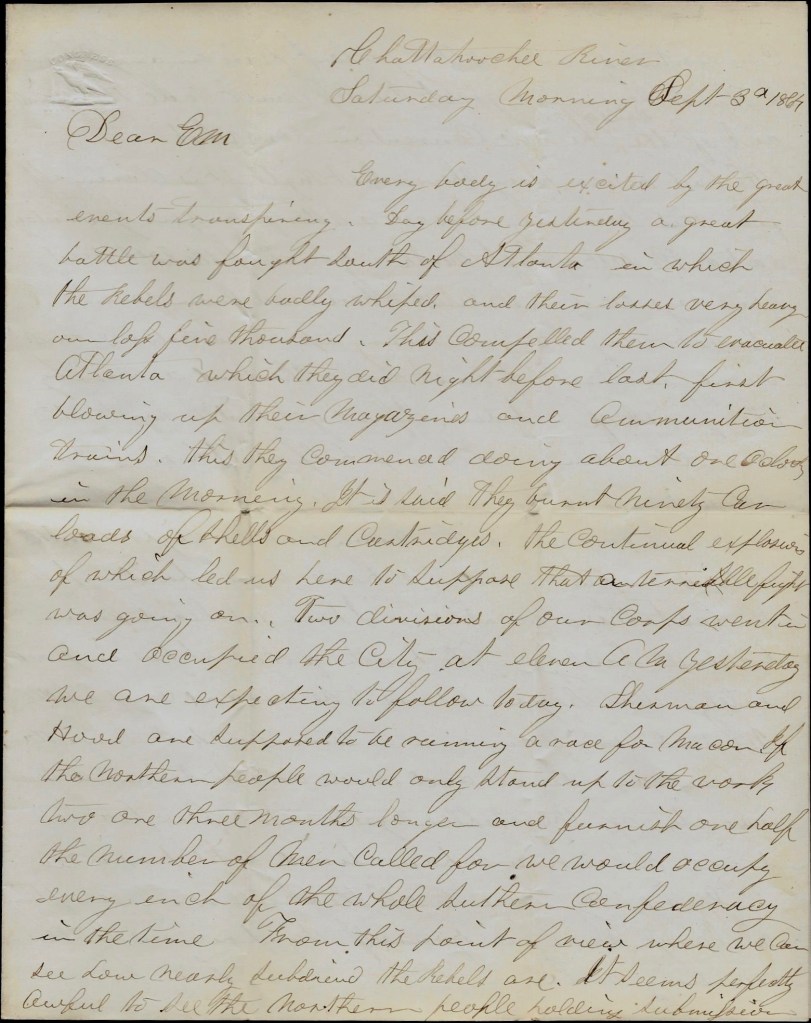 Chattahoochee River
Saturday Morning Sept 3d 1864
Dear Em
Every body is excited by the great
events transpiring. Day before yesterday a great
battle was fought south of Atlanta in which
the Rebels were badly whiped. and their losses very heavy
our loss five thousand. This Compelled them to evacuate
Atlanta which they did night before last. first
blowing up their Magazines and Ammunition
Trains. this they commenced doing about one oclock
in the Morning. It is said they burnt Ninety Car
loads of shells and Cartridges. the Continual explosions
of which led us here to suppose that a terrible fight
was going on. Two divisions of our Corps went in
and occupied the City at eleven A M yesterday
we are expecting to follow today. Sherman and
Hood are supposed to be running a race for Macon If
the Northern people would only stand up to the work
two ore three months longer and furnish one half
the number of Men Called for we would occupy
every inch of the whole suthern Confederacy
in the time From this point of view where we Can
see how nearly the Rebels are. It seems perfectly
awful to see the Northern people holding submission